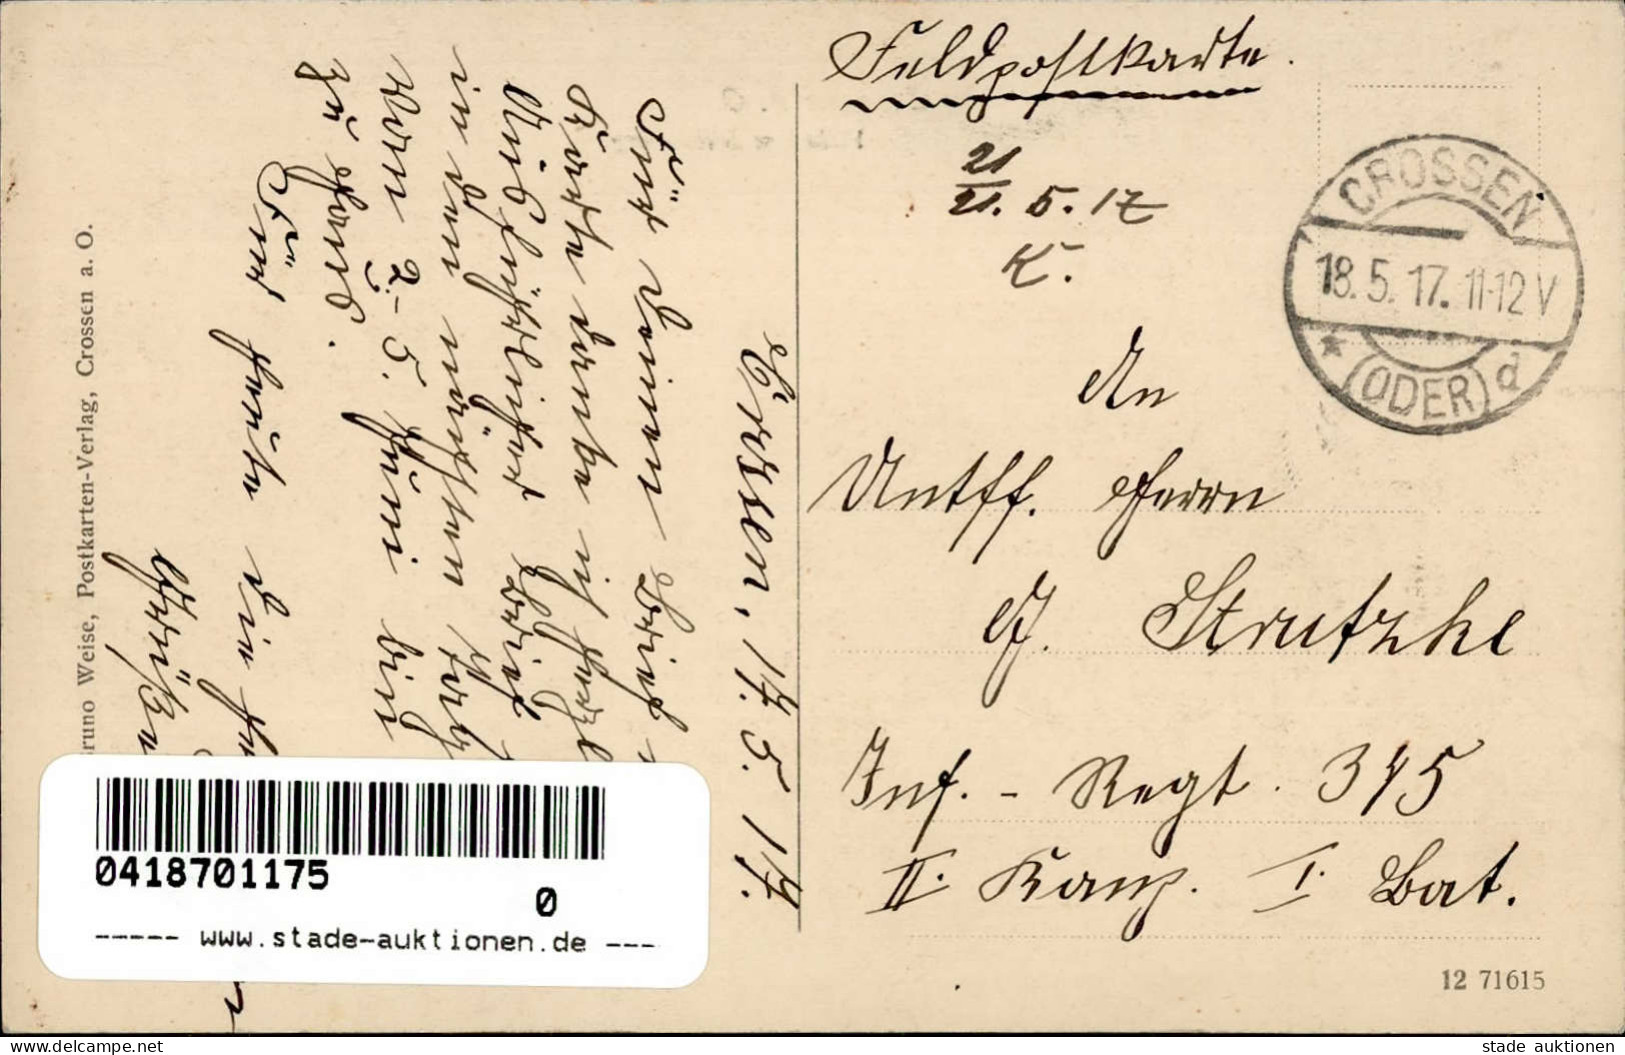 Feldpostkarte.
21
21. 5. 17
K.
CROSSEN
18.5.17. 11-12 V
* (ODER) d
An
Untff. Herrn
G. Strutzke
Inf. - Regt. 345
II. Komp. I. Bat.
12 71615
Crossen, 17. 5. 17.
Für Deinen Brief
Karte danke ich herzl
Ausführlicher Brief
in den nächsten Tag
Vom 2.-5. Juni bin
zu Haus.
Für heute die
Grüße
Bruno Weise, Postkarten-Verlag, Crossen a. O.
0418701175
0
----- www.stade-auktionen.de ---
www.delcampe.net
stade auktionen